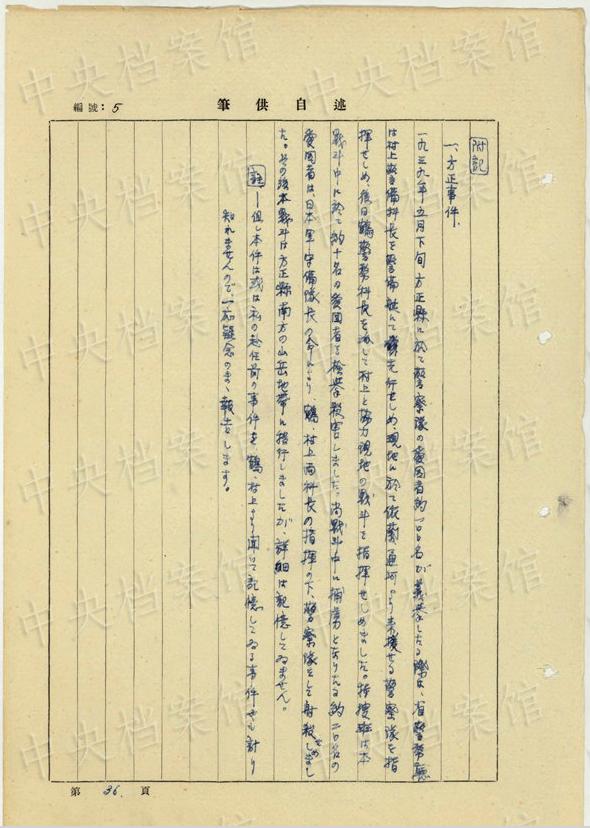 編號：5
筆供自述
附記
一、方正事件.
一九三九年五月下旬方正縣に於て警察隊の愛国者約一〇〇名が義挙したる際は、省警務廳
は村上警備科長を警備隊にて先行せしめ、現地に於て依蘭通河より来援せる警察隊を指
揮せしめ、後日鶴警務科長を派して村上と協力現地の戦斗を指揮せしめました。特捜班は本
戦斗中に於て約十名の愛国者を検挙殺害しました。尚戦斗中に捕虜となりたる約二〇名の
愛国者は、日本軍守備隊長の命により、鶴、村上両科長の指揮の下、警察隊をして射殺せしめまし
た。その後本戦斗は方正縣南方の山岳地帯に移行しましたが、詳細は記憶してゐません。
註—但し本件は或は私の赴任前の事件を鶴、村上より聞いて記憶してゐる事件かも計り
知れませんので、一應疑念のまゝ報告します。
第 36. 頁
中央档案馆